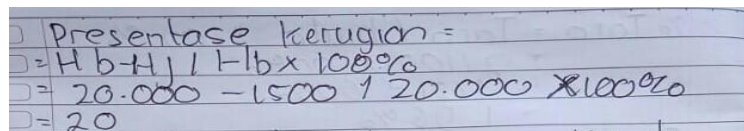 Presentase kerugian =
= Hb-HJ / Hb x 100%
= 20.000 - 1500 / 20.000 x 100%
= 20